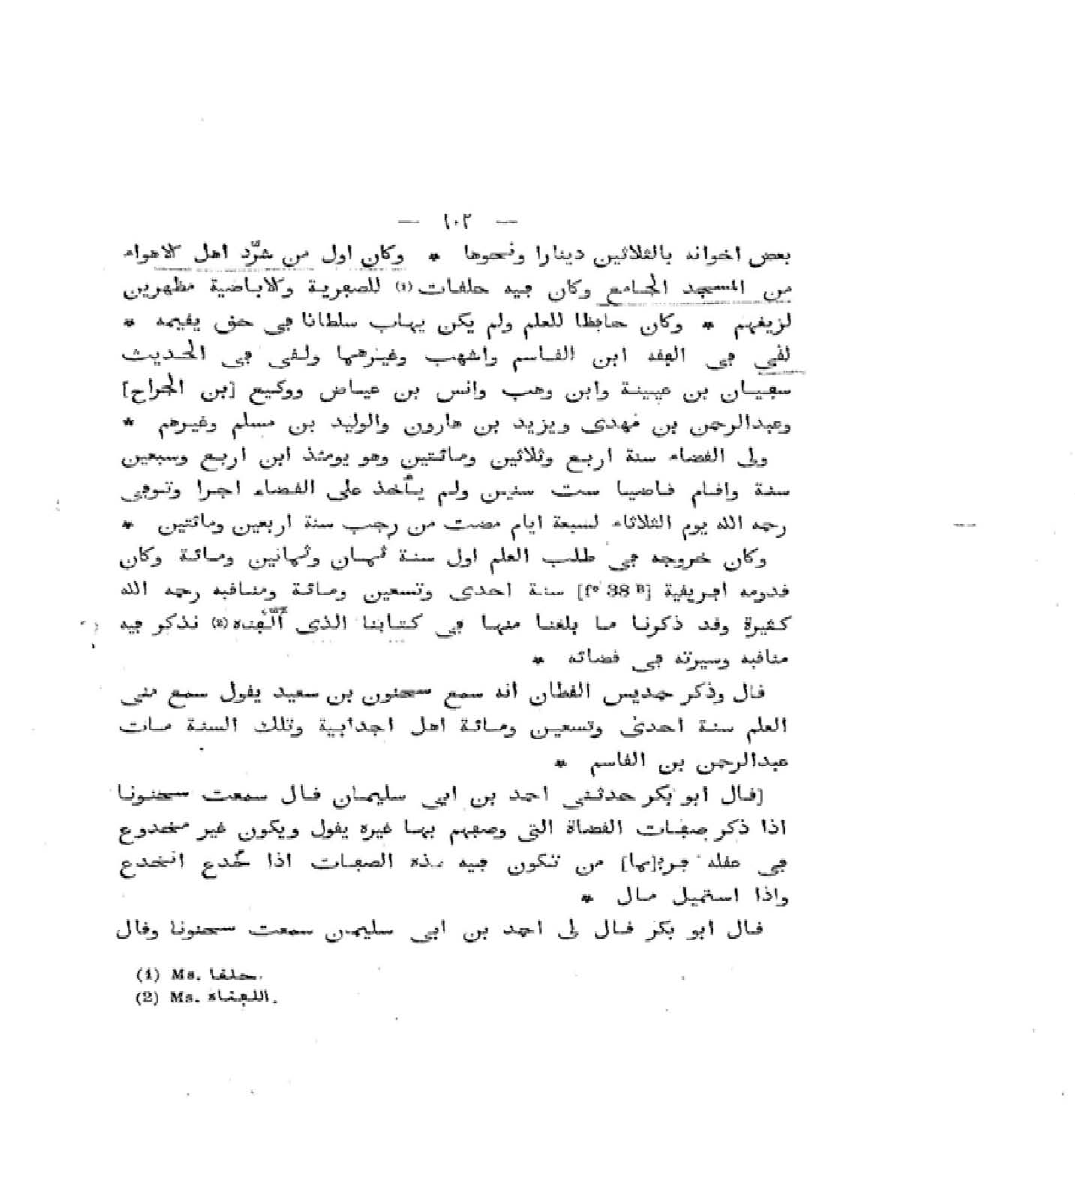 — ١٠٢ —
بعض اخوانه بالثلاثين دينارا ونحوها * وكان اول من شرّد اهل الاهواء
من المسجد الجامع وكان فيه حلقات (1) للصفرية والاباضية مظهرين
لزيغهم * وكان حافظا للعلم ولم يكن يهاب سلطانا في حق يقيمه *
لقي في الفقه ابن القاسم واشهب وغيرهما ولقى في الحديث
سفيان بن عيينة وابن وهب وانس بن عياض ووكيع [بن الجراح]
وعبدالرحمن بن مهدى ويزيد بن هارون والوليد بن مسلم وغيرهم *
ولى القضاء سنة اربع وثلاثين ومائتين وهو يومئذ ابن اربع وسبعين
سنة واقام قاضيا ست سنين ولم يأخذ على القضاء اجرا وتوفى
رحمه الله يوم الثلاثاء لسبعة ايام مضت من رجب سنة اربعين ومائتين *
وكان خروجه في طلب العلم اول سنة ثمان وثمانين ومائة وكان
قدومه افريقية [fº 38 B] سنة احدى وتسعين ومائة ومناقبه رحمه الله
كثيرة وقد ذكرنا ما بلغنا منها في كتابنا الذى ألّفناه (2) نذكر فيه
مناقبه وسيرته في قضائه *
قال وذكر حمديس القطان انه سمع سحنون بن سعيد يقول سمع منى
العلم سنة احدى وتسعين ومائة اهل اجدابية وتلك السنة مات
عبدالرحمن بن القاسم *
[قال ابو بكر حدثني احمد بن ابي سليمان قال سمعت سحنونا
اذا ذكر صفات القضاة التى وصفهم بها غيره يقول ويكون غير مخدوع
في عقله فر[بما] من تكون فيه هذه الصفات اذا خُدع انخدع
واذا استميل مال *
قال ابو بكر قال لى احمد بن ابى سليمن سمعت سحنونا وقال
(1) Ms. حلقا.
(2) Ms. اللفناه.